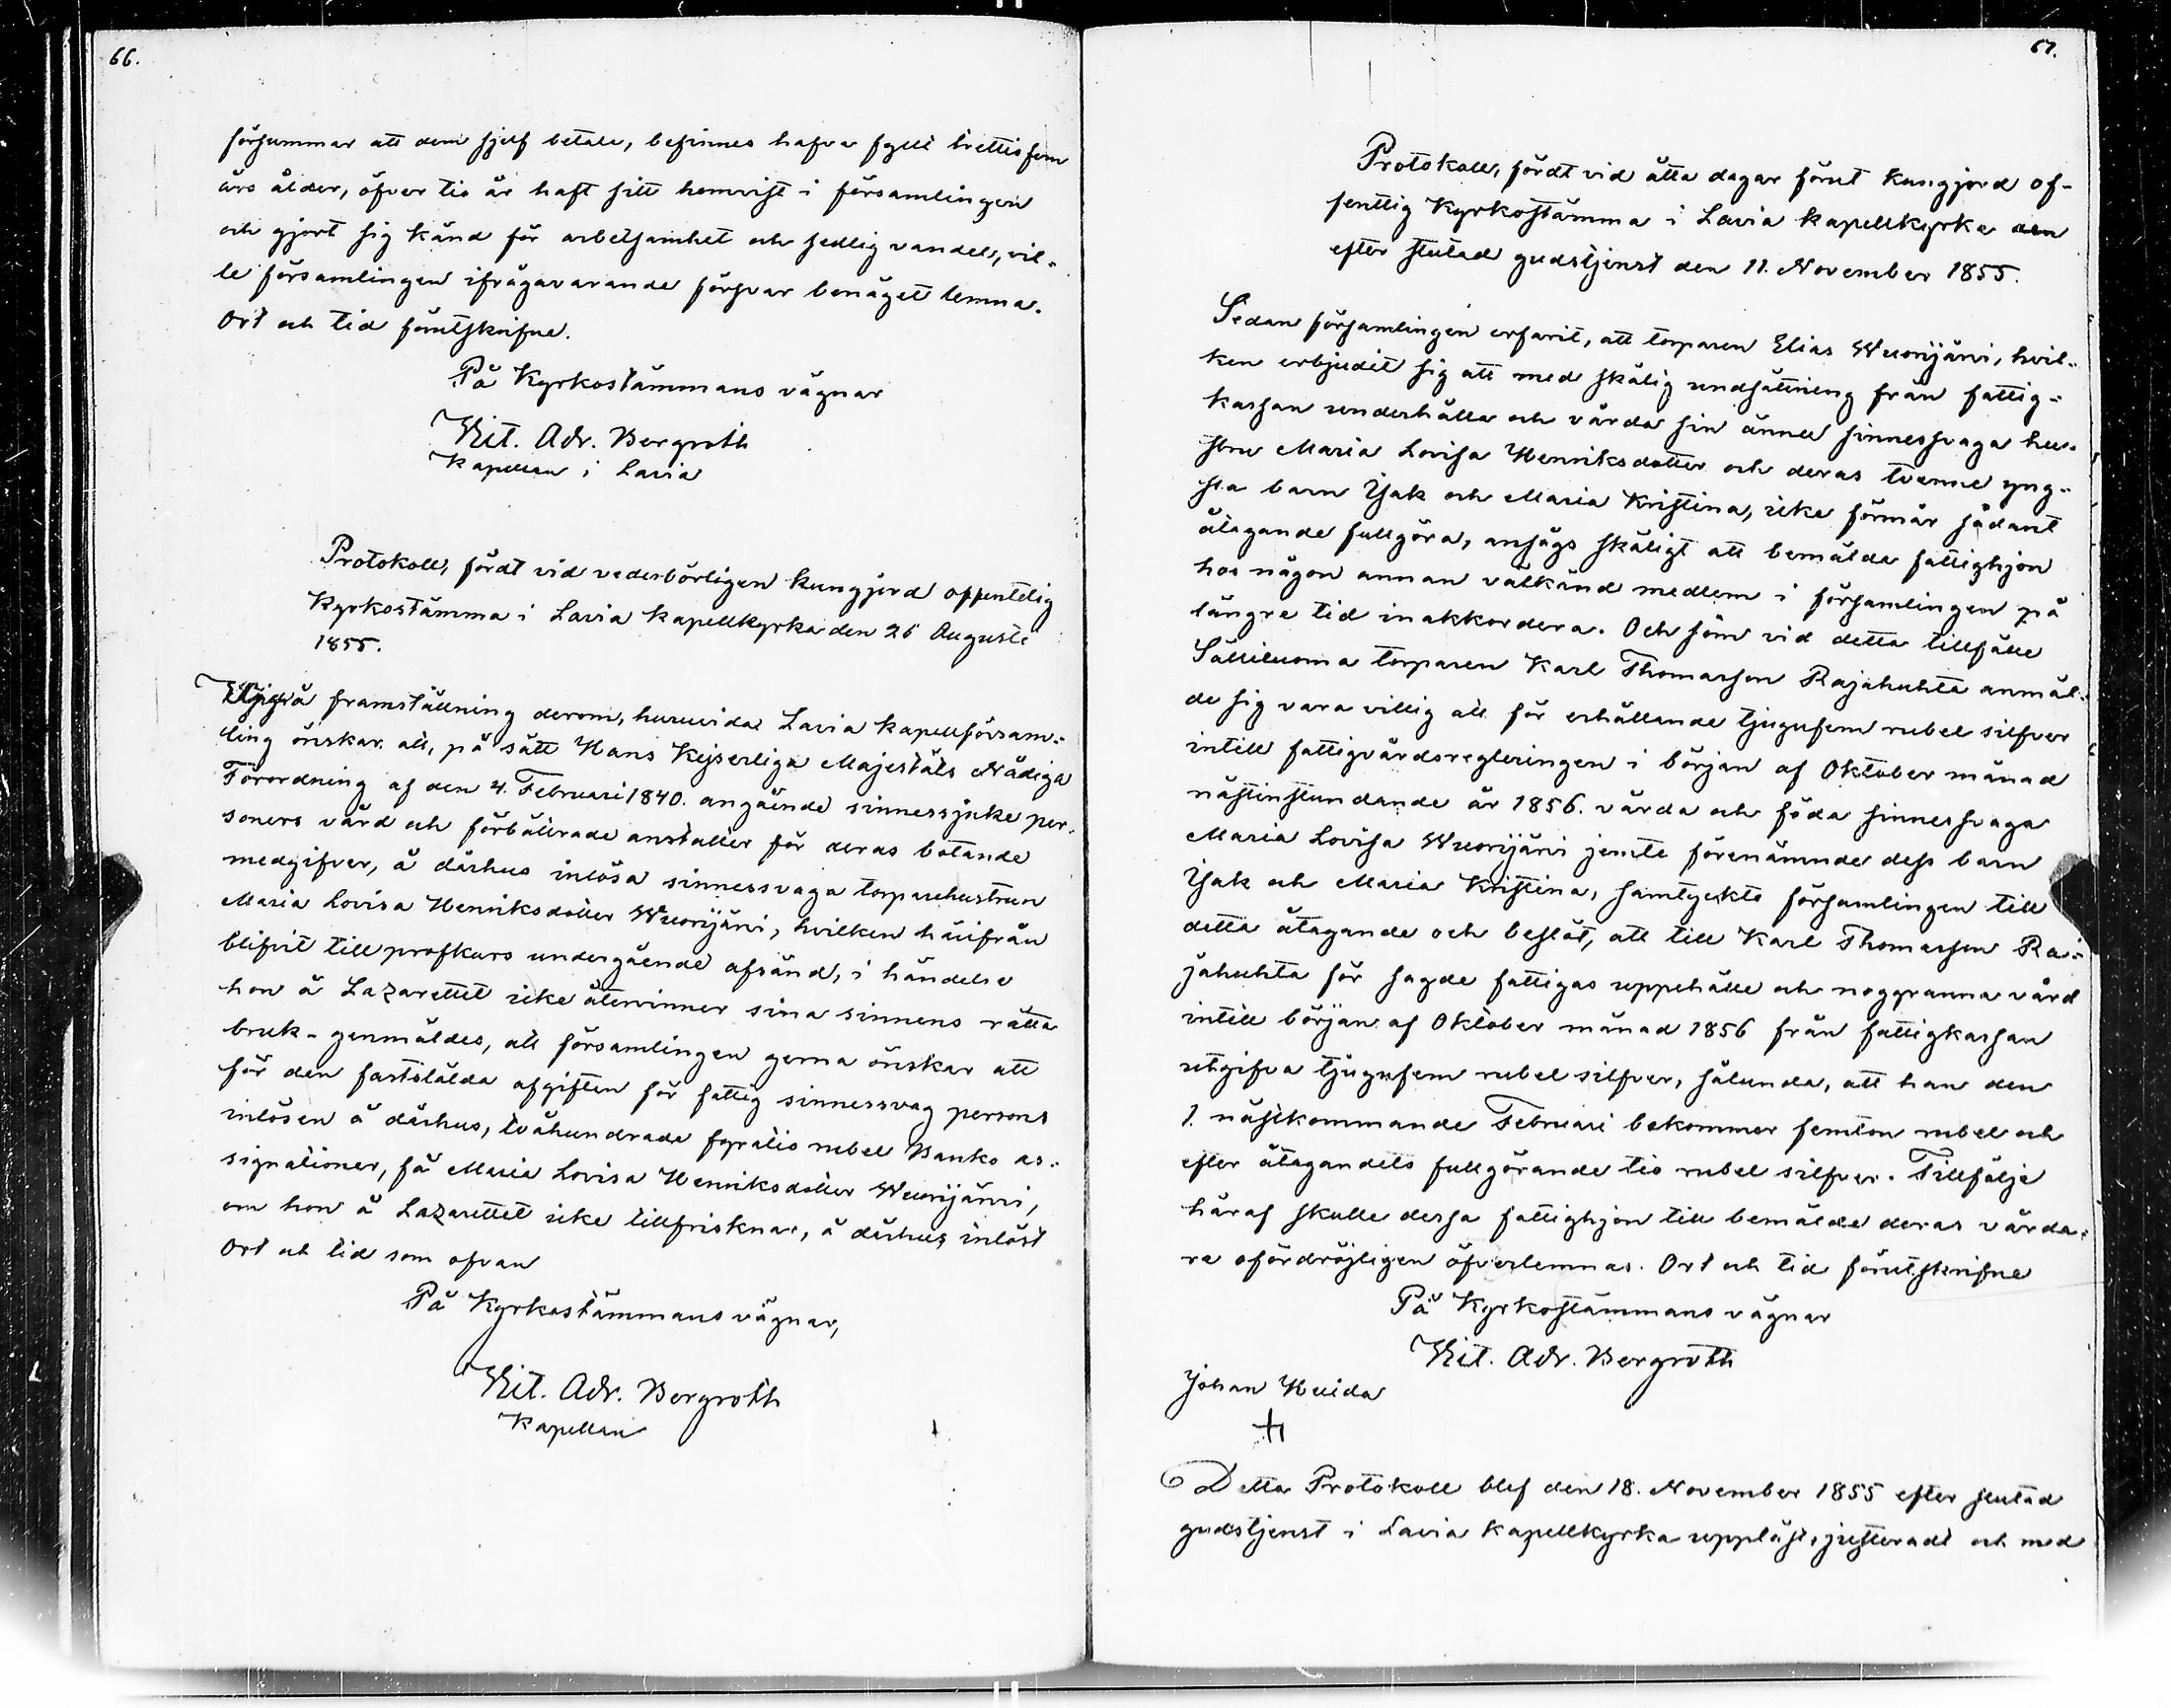 66.
försummar att dem sjelf betala, befinnes hafva fyllt trettiofem
års ålder, öfver tio år haft sitt hemvist i församlingen
och gjort sig känd för arbetsamhet och sedlig vandel, vil-
le församlingen ifrågavarande försvar benäget lemna.
Ort och tid förutskrifne.
På Kyrkostämmans vägnar
Vit. Adr. Bergroth
Kapellan i Lavia
Protokoll, fördt vid vederbörligen kungjord offentelig
Kyrkostämma i Lavia kapellkyrka den 26 Augusti
1855.
Uppå framställning derom, huruvida Lavia kapellförsam-
ling önskar att, på sätt Hans Kejserliga Majestäts Nådiga
Förordning af den 4. Februari 1840. angående sinnessjuke per-
soners vård och förbättrade anstalter för deras botande
medgifver, å dårhus inlösa sinnessvaga torparehustrun
Maria Lovisa Henriksdotter Wuorijärvi, hvilken härifrån
blifvit till profkurs undergående afsänd, i händelse
hon å Lazarettet icke återvinner sina sinnens rätta
bruk - genmäldes, att församlingen gerna önskar att
för den fastställda afgiften för fattig sinnessvag persons
inlösen å dårhus, tvåhundrade fyratio rubel Banko as-
signationer, få Maria Lovisa Henriksdotter Wuorijärvi,
om hon å Lazarettet icke tillfrisknar, å dårhus inlöst
Ort och tid som ofvan
På Kyrkostämmans vägnar,
Vit. Adr. Bergroth
Kapellan
67.
Protokoll, fördt vid åtta dagar förut kungjord of-
fenttig Kyrkostämma i Lavia kapellkyrka den
efter slutad gudstjenst den 11. November 1855.
Sedan församlingen erfarit, att torparen Elias Wuorijärvi, hvil-
ken erbjudit sig att med skälig undsättning från fattig-
kassan underhålla och vårda sin ännu sinnessvaga hu-
stru Maria Lovisa Henriksdotter och deras tvenne yng-
sta barn Isak och Maria Kristina, icke förmår sådant
åtagande fullgöra, ansågs skäligt att bemälda fattighjon
hos någon annan välkänd medlem i församlingen på
längre tid inakkordera. Och som vid detta tillfälle
Sättiluoma torparen Karl Thomasson Rajahuhta anmäl-
de sig vara villig att för erhållande tjugufem rubel silfver
intill fattigvårdsregleringen i början af Oktober månad
nästinstundande år 1856. vårda och föda sinnessvaga
Maria Lovisa Wuorijärvi jemte förenämnde dess barn
Isak och Maria Kristina, samtyckte församlingen till
detta åtagande och beslöt, att till Karl Thomasson Ra-
jahuhta för sagde fattigas uppehälle och noggranna vård
intill början af Oktober månad 1856 från fattigkassan
utgifva tjugufem rubel silfver, sålunda, att han den
1. nästkommande Februari bekommer femton rubel och
efter åtagandets fullgörande tio rubel silfver. Tillfölje
häraf skulle dessa fattighjon till bemälde deras vårda-
re ofördröjligen öfverlemnas. Ort och tid förutskrifne
På Kyrkostämmans vägnar
Vit. Adr. Bergroth
Johan Huida
Detta Protokoll blef den 18. November 1855 efter slutad
gudstjenst i Lavia kapellkyrka uppläst, justeradt och med